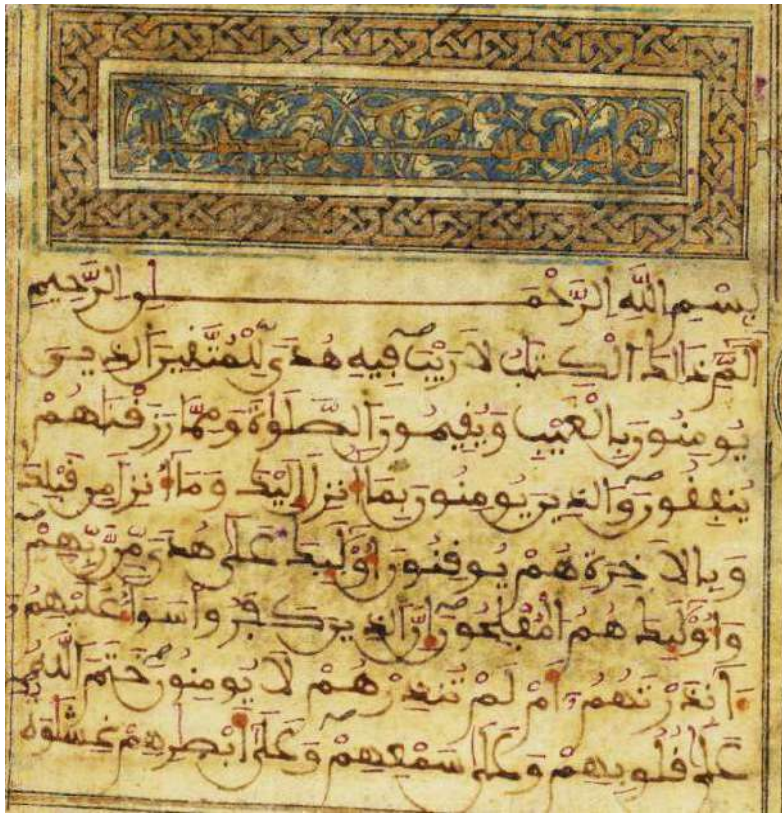 سورة البقرة
بِسْمِ اللَّهِ الرَّحْمَٰنِ الرَّحِيمِ
الَمِّ ذَٰلِكَ الْكِتَٰبُ لَا رَيْبَ فِيهِ هُدًى لِّلْمُتَّقِينَ الذِينَ
يُومِنُونَ بِالْغَيْبِ وَيُقِيمُونَ الصَّلَوٰةَ وَمِمَّا رَزَقْنَٰهُمْ
يُنفِقُونَ وَالذِينَ يُومِنُونَ بِمَا أُنزِلَ إِلَيْكَ وَمَا أُنزِلَ مِن قَبْلِكَ
وَبِالَاخِرَةِ هُمْ يُوقِنُونَ أُوْلَٰئِكَ عَلَىٰ هُدًى مِّن رَّبِّهِمْ
وَأُوْلَٰئِكَ هُمُ الْمُفْلِحُونَ إِنَّ الذِينَ كَفَرُوا سَوَاءٌ عَلَيْهِمُ
ءَانذَرْتَهُمُ أَمْ لَمْ تُنذِرْهُمْ لَا يُومِنُونَ خَتَمَ اللَّهُ
عَلَىٰ قُلُوبِهِمْ وَعَلَىٰ سَمْعِهِمْ وَعَلَىٰ أَبْصَٰرِهِمْ غِشَٰوَةٌ